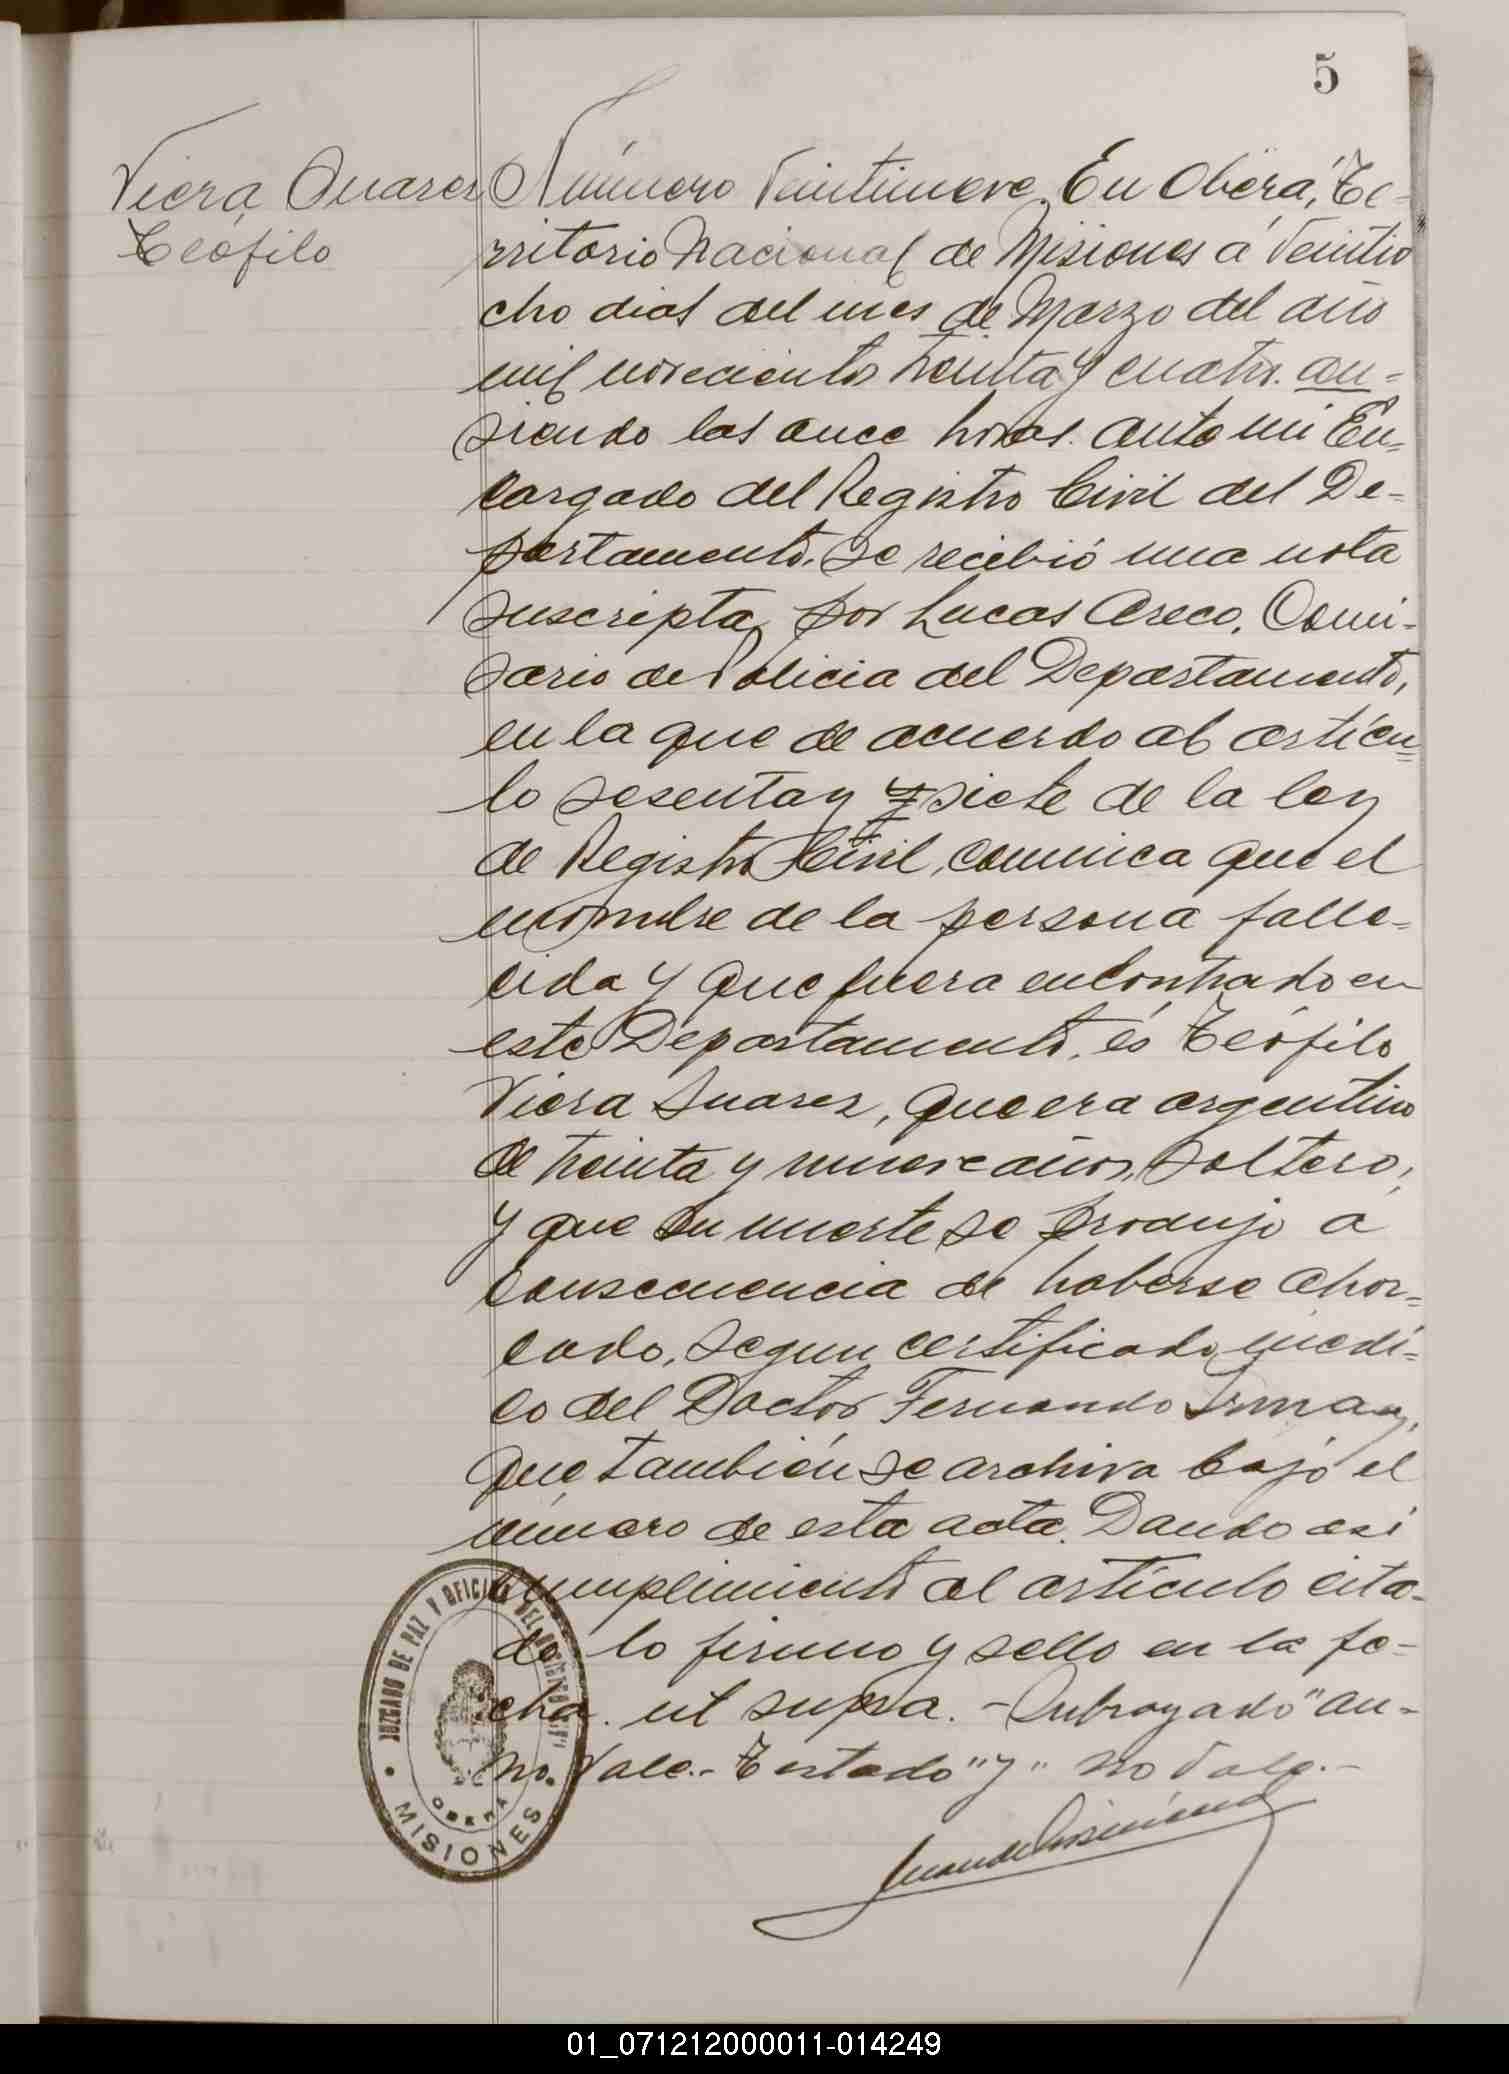 5
Viera Suarez
Teófilo
Número Veintinueve. En Oberá, Te-
rritorio Nacional de Misiones á Veintio
cho dias del mes de Marzo del año
mil novecientos treinta y cuatro. an-
siendo las once horas. ante mi En-
cargado del Registro Civil del De-
partamento. se recibió una nota
suscripta por Lucas Areco, Comi-
sario de Policia del Departamento,
en la que de acuerdo al artícu-
lo sesenta y y siete de la ley
de Registro Civil, comunica que el
nombre de la persona falle-
cida y que fuera encontrado en
este Departamento, és Teófilo
Viera Suarez, que era argentino
de treinta y nueve años, soltero,
y que su muerte se produjo a
consecuencia de haberse ahor-
cado, segun certificado médi-
co del Doctor Fernando
que también se archiva bajo el
número de esta acta. Dando así
cumplimiento al artículo cita-
do lo firmo y sello en la fe-
cha. ut supra. - Subrayado "an-
no vale.- Testado "y" no vale.-
JUZGADO DE PAZ Y OFICINA DEL REGISTRO CIVIL
OBERA
MISIONES
01_071212000011-014249